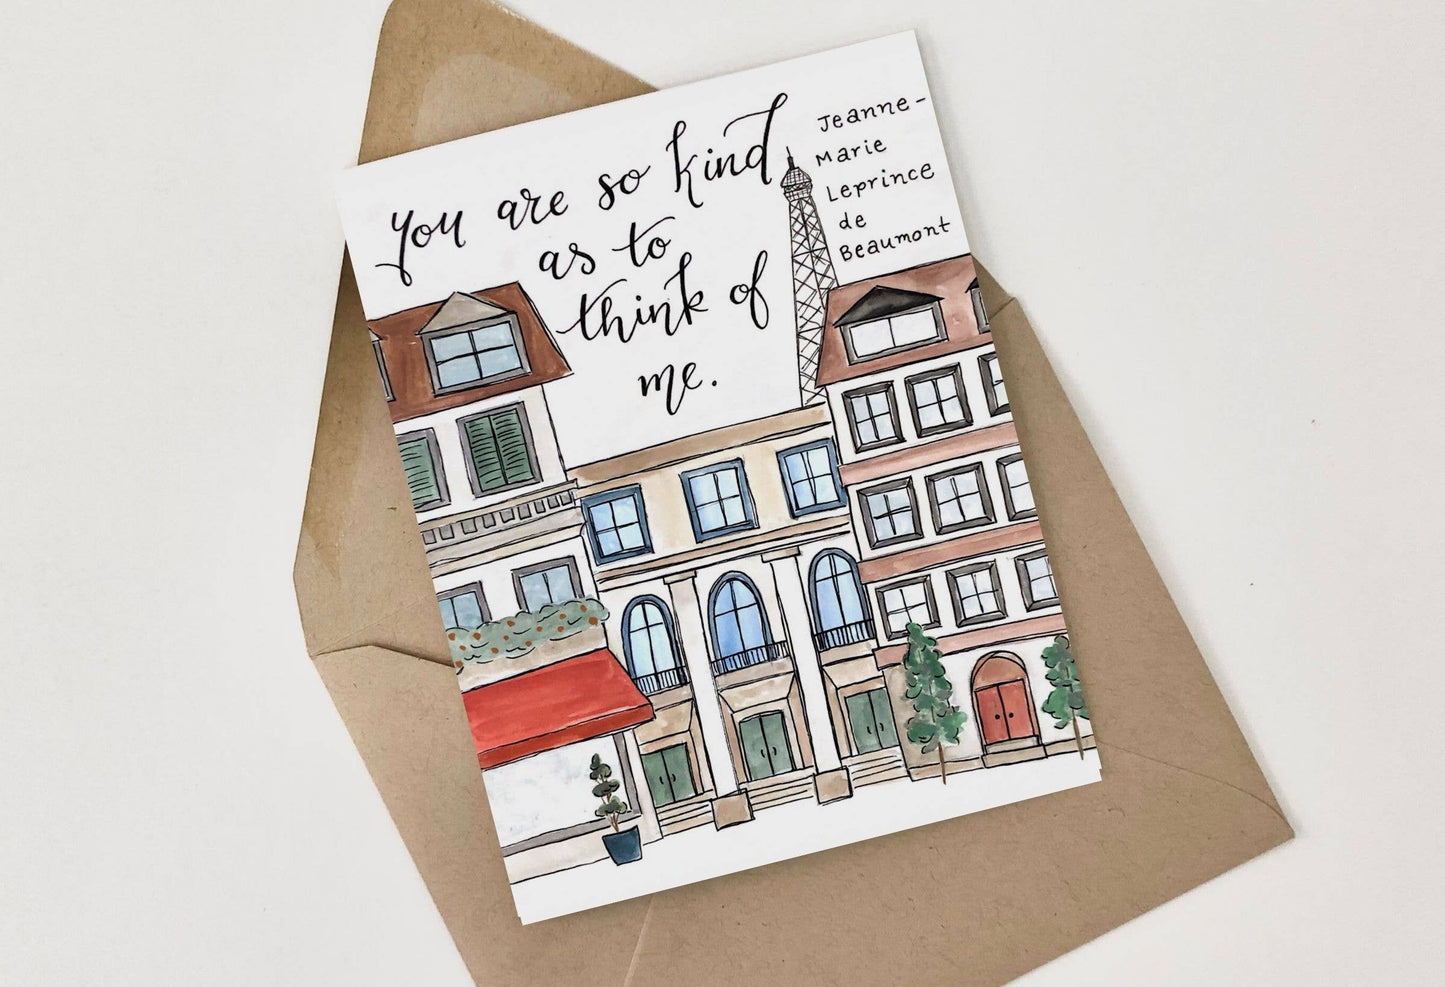 You are so kind
as to
think of
me.
Jeanne-
Marie
Leprince
de
Beaumont